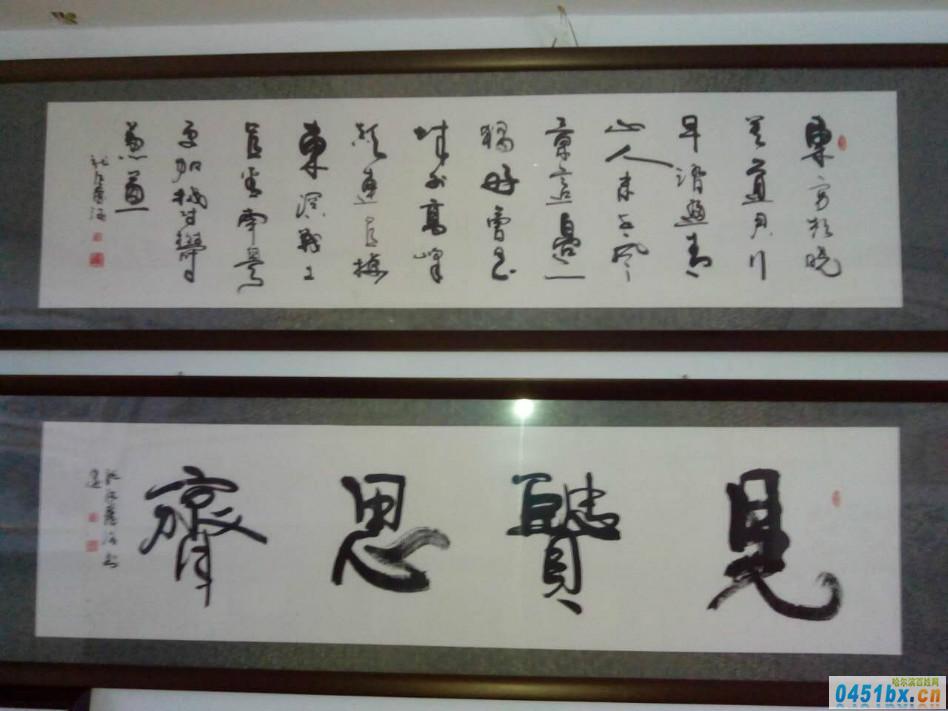 東方欲曉
莫道君行
早踏遍青
山人未老風
景這邊
獨好會昌
城外高峰
顛連直接
東溟戰士
指看南粵
更加郁鬱
葱葱
見賢思齊
哈尔滨百姓网
0451bx.cn